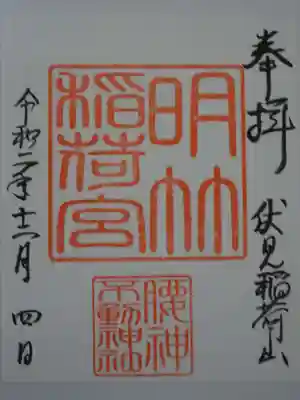 奉拝 伏見稲荷山
明
稲荷宮
腰神
不動神社
令和二年十二月 四日